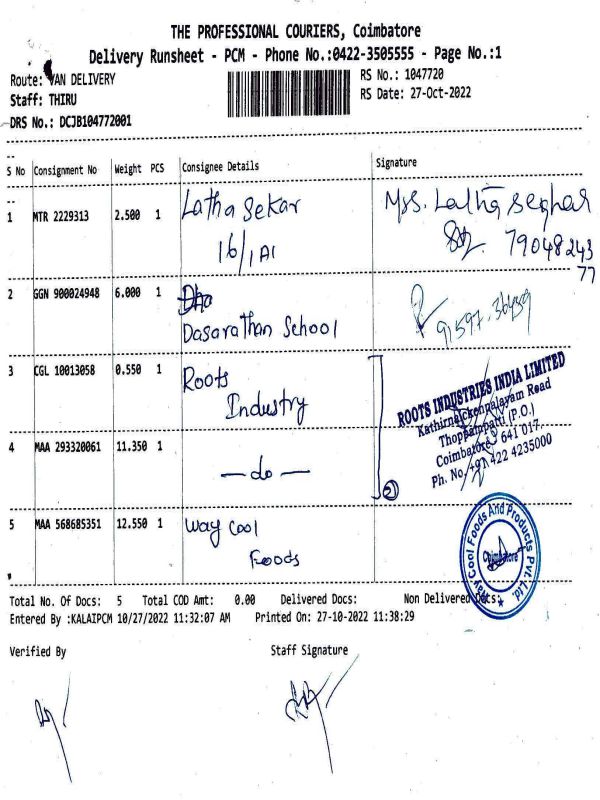 THE PROFESSIONAL COURIERS, Coimbatore
Delivery Runsheet - PCM - Phone No.:0422-3505555 - Page No.:1
Route: VAN DELIVERY
RS No.: 1047720
Staff: THIRU
RS Date: 27-Oct-2022
DRS No.: DCJB104772001
S No Consignment No Weight PCS Consignee Details Signature
1 MTR 2229313 2.500 1 Latha Sekar Mrs. Latha Seghar
16/1 A1 79048243
77
2 GGN 900024948 6.000 1
Dasarathan School
3 CGL 10013058 0.550 1 Roots
Industry
ROOTS INDUSTRIES INDIA LIMITED
Kathirnaickenpalayam Road
Thoppampatti (P.O.)
Coimbatore - 641 017.
Ph. No. +91 422 4235000
4 MAA 293320061 11.350 1 — do —
2
5 MAA 568685351 12.550 1 Way Cool
Foods
Way Cool Foods And Products Pvt. Ltd.
Coimbatore
Total No. Of Docs: 5 Total COD Amt: 0.00 Delivered Docs: Non Delivered Docs:
Entered By :KALAIPCM 10/27/2022 11:32:07 AM Printed On: 27-10-2022 11:38:29
Verified By Staff Signature